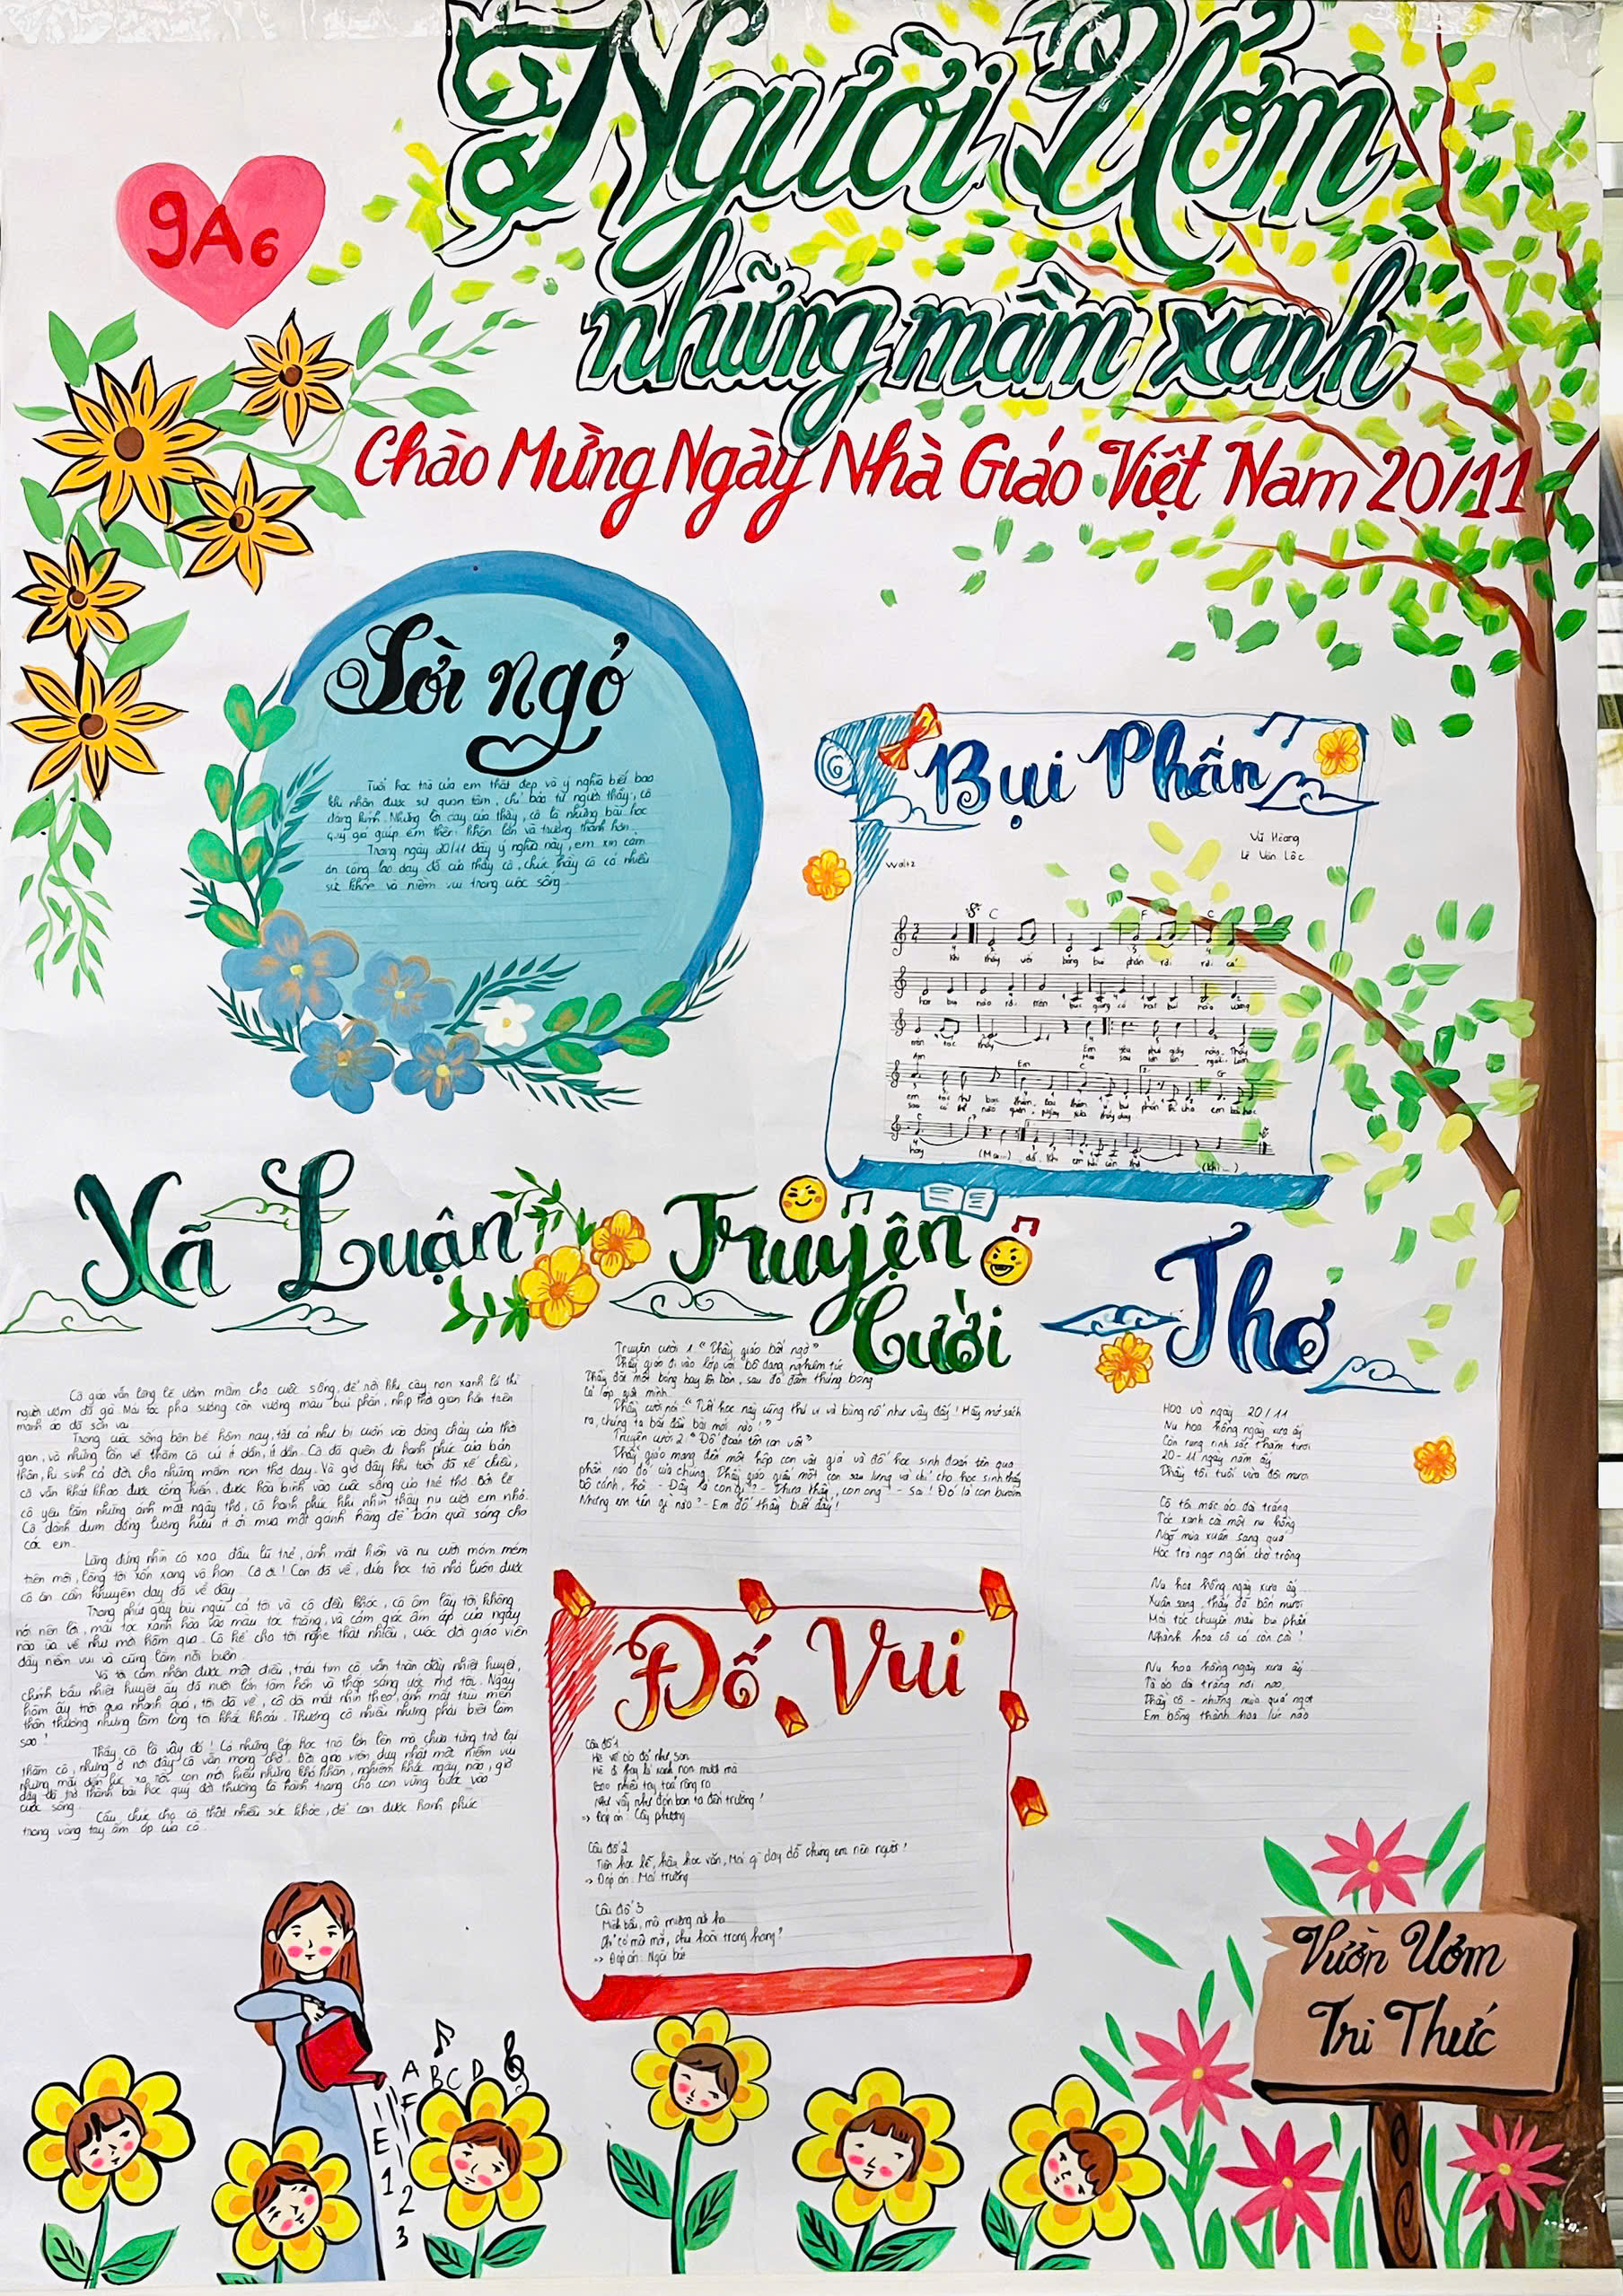 9A6
Người Ươm
những mầm xanh
Chào Mừng Ngày Nhà Giáo Việt Nam 20/11
Lời ngỏ
Tuổi học trò của em thật đẹp và ý nghĩa biết bao
khi nhận được sự quan tâm, chỉ bảo từ người thầy, cô
đáng kính. Những lời dạy của thầy, cô là những bài học
quý giá giúp em thêm khôn lớn và trưởng thành hơn.
Trong ngày 20/11 đầy ý nghĩa này, em xin cảm
ơn công lao dạy dỗ của thầy cô, chúc thầy cô có nhiều
sức khỏe và niềm vui trong cuộc sống.
Bụi Phấn
Vũ Hoàng
Lê Văn Lộc
Waltz
C F C
Khi thầy viết bảng bụi phấn rơi rơi có
hạt bụi nào rơi trên bục giảng có hạt bụi nào vương
trên tóc thầy Em yêu phút giây này. Thầy
Mai sau lớn lên người. Làm
Am Em C G
em tóc như bạc thêm, bạc thêm vì bụi phấn để cho em bài học
sao có thể nào quên, ngày xưa thầy dạy
hay (Mai...) dỗ. Khi em tuổi còn thơ (Khi...)
Xã Luận
Cô giáo vẫn lặng lẽ ươm mầm cho cuộc sống, để rồi khi cây non xanh lá thì
người ươm đã già. Mái tóc pha sương còn vương màu bụi phấn, nhịp thời gian hằn trên
mảnh áo đã sờn vai.
Trong cuộc sống bộn bề hôm nay, tất cả như bị cuốn vào dòng chảy của thời
gian, và những lần về thăm cô cứ ít dần, ít dần. Cô đã quên đi hạnh phúc của bản
thân, hi sinh cả đời cho những mầm non thơ dại. Và giờ đây khi tuổi đã xế chiều,
cô vẫn khát khao được cống hiến, được hòa bình vào cuộc sống của trẻ thơ. Bởi lẽ
cô yêu lắm những ánh mắt ngây thơ, cô hạnh phúc khi nhìn thấy nụ cười em nhỏ.
Cô dành dụm đồng lương hưu ít ỏi mua một gánh hàng để bán quà sáng cho
các em.
Lặng đứng nhìn cô xoa đầu lũ trẻ, ánh mắt hiền và nụ cười móm mém
trên môi, lòng tôi xốn xang vô hạn. Cô ơi! Con đã về, đứa học trò nhỏ luôn được
cô ân cần khuyên dạy đã về đây.
Trong phút giây bùi ngùi cả tôi và cô đều khóc, cô ôm lấy tôi không
nói nên lời, mái tóc xanh hòa vào màu tóc trắng, và cảm giác ấm áp của ngày
nào ùa về như mới hôm qua. Cô kể cho tôi nghe thật nhiều, cuộc đời giáo viên
đầy niềm vui và cũng lắm nỗi buồn.
Và tôi cảm nhận được một điều, trái tim cô vẫn tràn đầy nhiệt huyết,
chính bầu nhiệt huyết ấy đã nuôi lớn tâm hồn và thắp sáng ước mơ tôi. Ngày
hôm ấy trôi qua nhanh quá, tôi đã về, cô dõi mắt nhìn theo, ánh mắt trìu mến
thân thương nhưng làm lòng tôi khắc khoải. Thương cô nhiều nhưng phải biết làm
sao!
Thầy cô là vậy đó! Có những lớp học trò lớn lên mà chưa từng trở lại
thăm cô, nhưng ở nơi đây cô vẫn mong chờ. Đời giáo viên duy nhất một niềm vui
nhưng mấy
đây đã trở thành bài học quý đời thường là hành trang cho con vững bước vào
cuộc sống.
Cầu chúc cho cô thật nhiều sức khỏe, để con được hạnh phúc
trong vòng tay ấm áp của cô.
Truyện
Cười
Truyện cười 1 "Thầy giáo bất ngờ"
Thầy giáo đi vào lớp với bộ dạng nghiêm túc
Thầy đặt một bóng bay lên bàn, sau đó đâm thủng bóng
cả lớp giật mình.
Thầy cười nói: "Tiết học này cũng thú vị và bùng nổ như vậy đấy! Hãy mở sách
ra, chúng ta bắt đầu bài mới nào!"
Truyện cười 2: "Đố đoán tên con vật"
Thầy giáo mang đến một hộp con vật giả và đố học sinh đoán tên qua
phần nào đó của chúng. Thầy giáo giấu một con sau lưng và chỉ cho học sinh thấy
bộ cánh, hỏi: - Đây là con gì? - Thưa thầy, con ong! - Sai! Đó là con bướm
Nhưng em tên gì nào? - Em đố thầy biết đấy!
Thơ
Hoa và ngày 20/11
Nụ hoa hồng ngày xưa ấy
Còn rung rinh sắc thắm tươi
20-11 ngày năm ấy
Thầy tôi tuổi vừa đôi mươi
Cô tôi mặc áo dài trắng
Tóc xanh cài một nụ hồng
Ngỡ mùa xuân sang quá
Học trò ngơ ngẩn chờ trông
Nụ hoa hồng ngày xưa ấy
Xuân sang, thầy đã bốn mươi
Mái tóc chuyển màu bụi phấn
Nhành hoa cô có còn cài!
Nụ hoa hồng ngày xưa ấy
Tà áo dài trắng nơi nào
Thầy cô - những mùa quả ngọt
Em bỗng thành hoa lúc nào
Đố Vui
Câu đố 1
Hè về áo đỏ như son
Hè đi thay lá xanh non mượt mà
Bao nhiêu tay toả rộng ra
Như vẫy như đón bạn ta đến trường!
-> Đáp án: Cây phượng
Câu đố 2
Tiên học lễ, hậu học văn, Nơi gì dạy dỗ chúng em nên người!
-> Đáp án: Mái trường
Câu đố 3
Mình bầu, mà miệng
Chỉ có một mắt, chui hoài trong hang?
-> Đáp án: Ngòi bút
A B C D
F
E
1
2
3
Vườn Ươm
Tri Thức